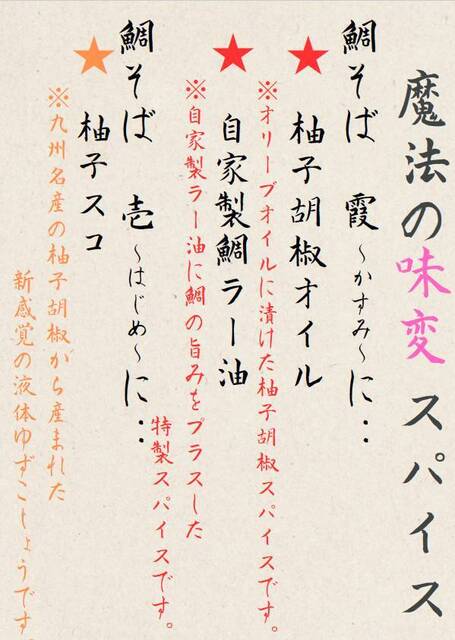 魔法の味変スパイス
鯛そば 霞 〜かすみ〜に‥
★ 柚子胡椒オイル
※オリーブオイルに漬けた柚子胡椒スパイスです。
★ 自家製鯛ラー油
※自家製ラー油に鯛の旨みをプラスした
特製スパイスです。
鯛そば 壱 〜はじめ〜に‥
★ 柚子スコ
※九州名産の柚子胡椒から産まれた
新感覚の液体ゆずこしょうです。